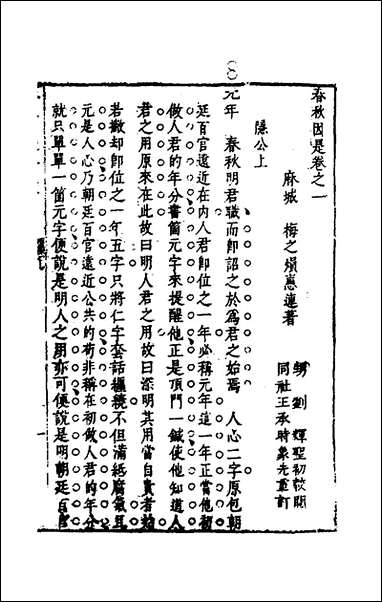 春秋因是卷之一
麻城　梅之熉惠連著
劉　輝聖初校閱
同社王承時象先重訂
隱公上
元年　春秋明君職而即詔之於為君之始焉　人心二字原包朝
廷百官遠近在内人君即位之一年必稱元年這一年正當他初
做人君的年分書箇元字來提醒他正是頂門一鍼使他知道人
君之用原來在此故曰明人君之用故曰深明其用當自貴者始
若歡却即位之一年五字只將仁字套話纏繞不但滿紙腐氣且
元是人心乃朝廷百官遠近公共的苟非稱在初做人君的年分
就只單單一箇元字便說是明人之用亦可便說是明朝廷百官